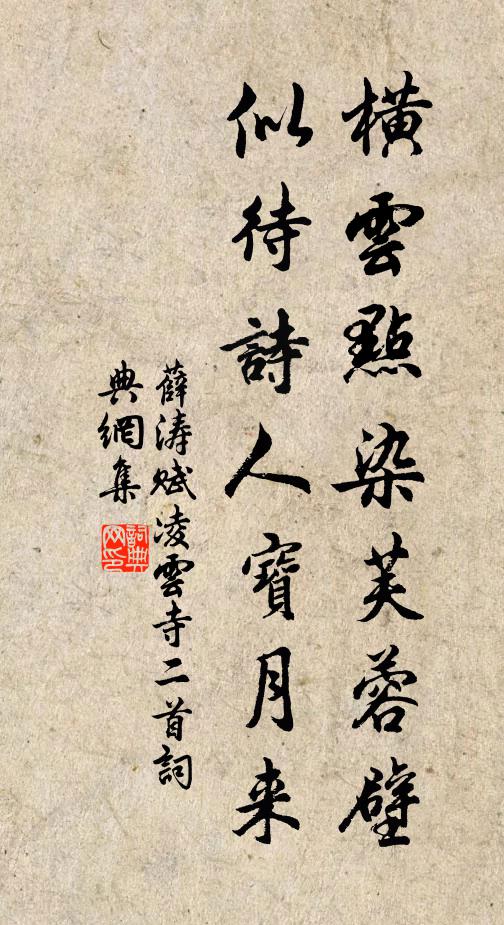 橫雲點染芙蓉壁
似待詩人寶月来
薛濤賦凌雲寺二首詞
典網集
詞典网印